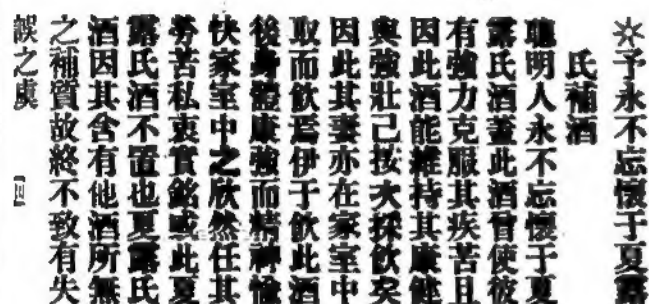 ※予永不忘懷于夏露
氏補酒
聰明人永不忘懷于夏
露氏酒蓋此酒曾使彼
有強力克服其疾苦且
因此酒能維持其康健
與強壯己按大採飲矣
因此其妻亦在家室中
取而飲焉伊于飲此酒
後身體康強而精神愉
快家室中之欣然任其
勞苦私衷實銘感此夏
露氏酒不置也夏露氏
酒因其含有他酒所無
之補質故終不致有失
誤之虞
【四】